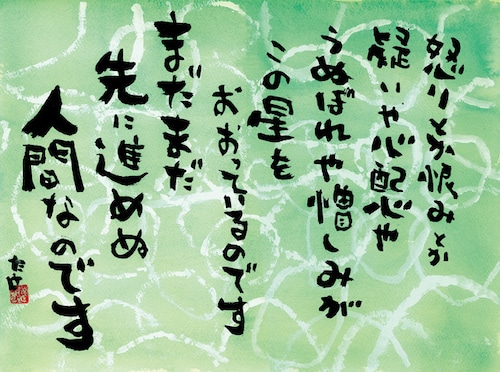 怒りとか恨みとか
疑いや心配や
うぬぼれや憎しみが
この星を
おおっているのです
まだまだ
先に進めぬ
人間なのです
たけ